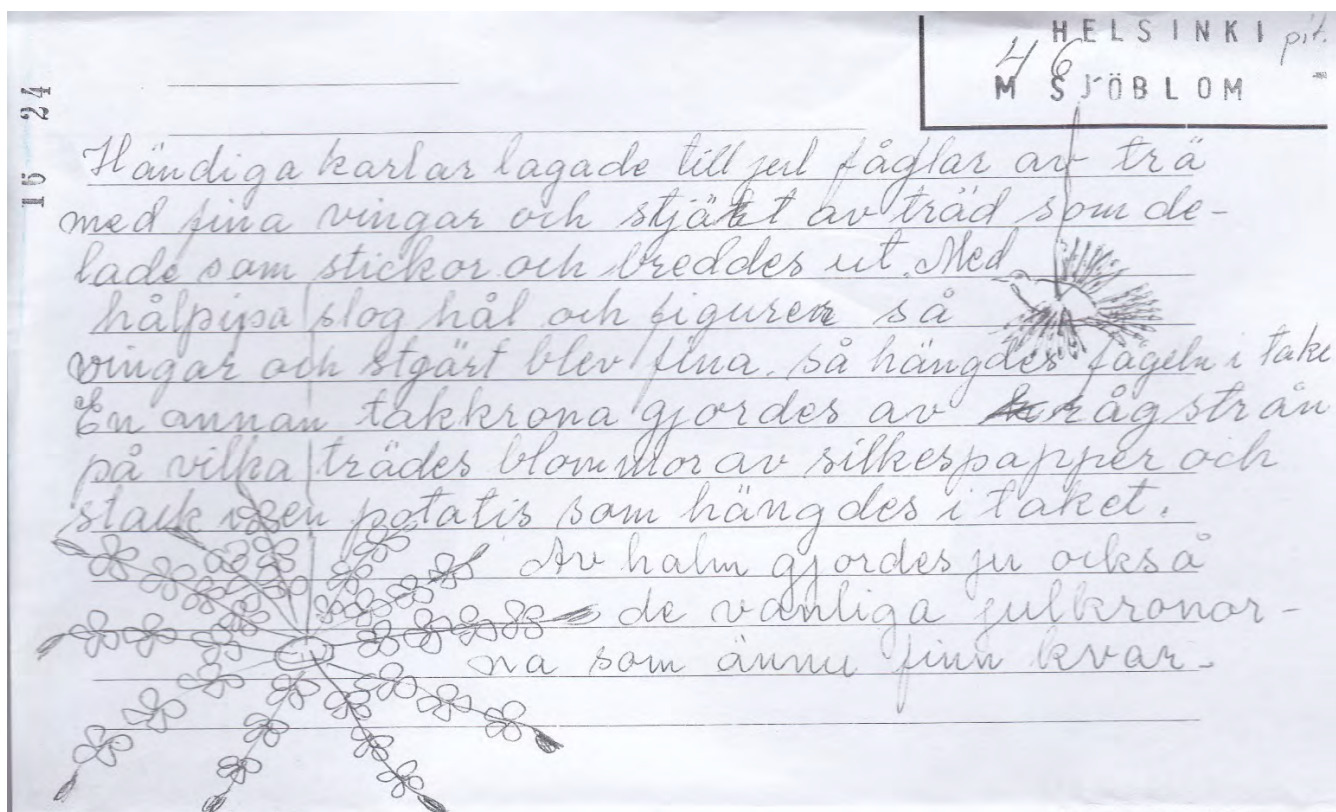 HELSINKI pit.
46
M SJÖBLOM
15 24
Händiga karlar lagade till jul fåglar av trä
med fina vingar och stjärt av träd som de-
lade som stickor och breddes ut. Med
hålpipa slog hål och figurer så
vingar och stgärt blev fina. så hängdes fågeln i take
En annan takkrona gjordes av rågstrån
på vilka träddes blommor av silkespapper och
stack i en potatis som hängdes i taket.
Av halm gjordes ju också
de vanliga julkronor-
na som ännu finn kvar.